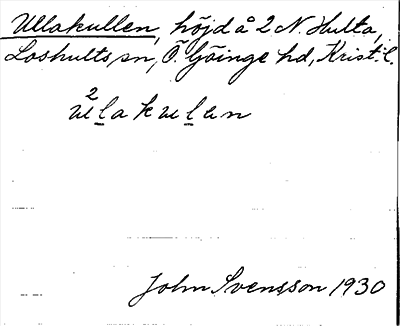 Ullakullen, höjd å 2 N. Hulta,
Loshults sn, Ö. Göinge hd, Krist. l.
2
ulakulen
John Svensson 1930